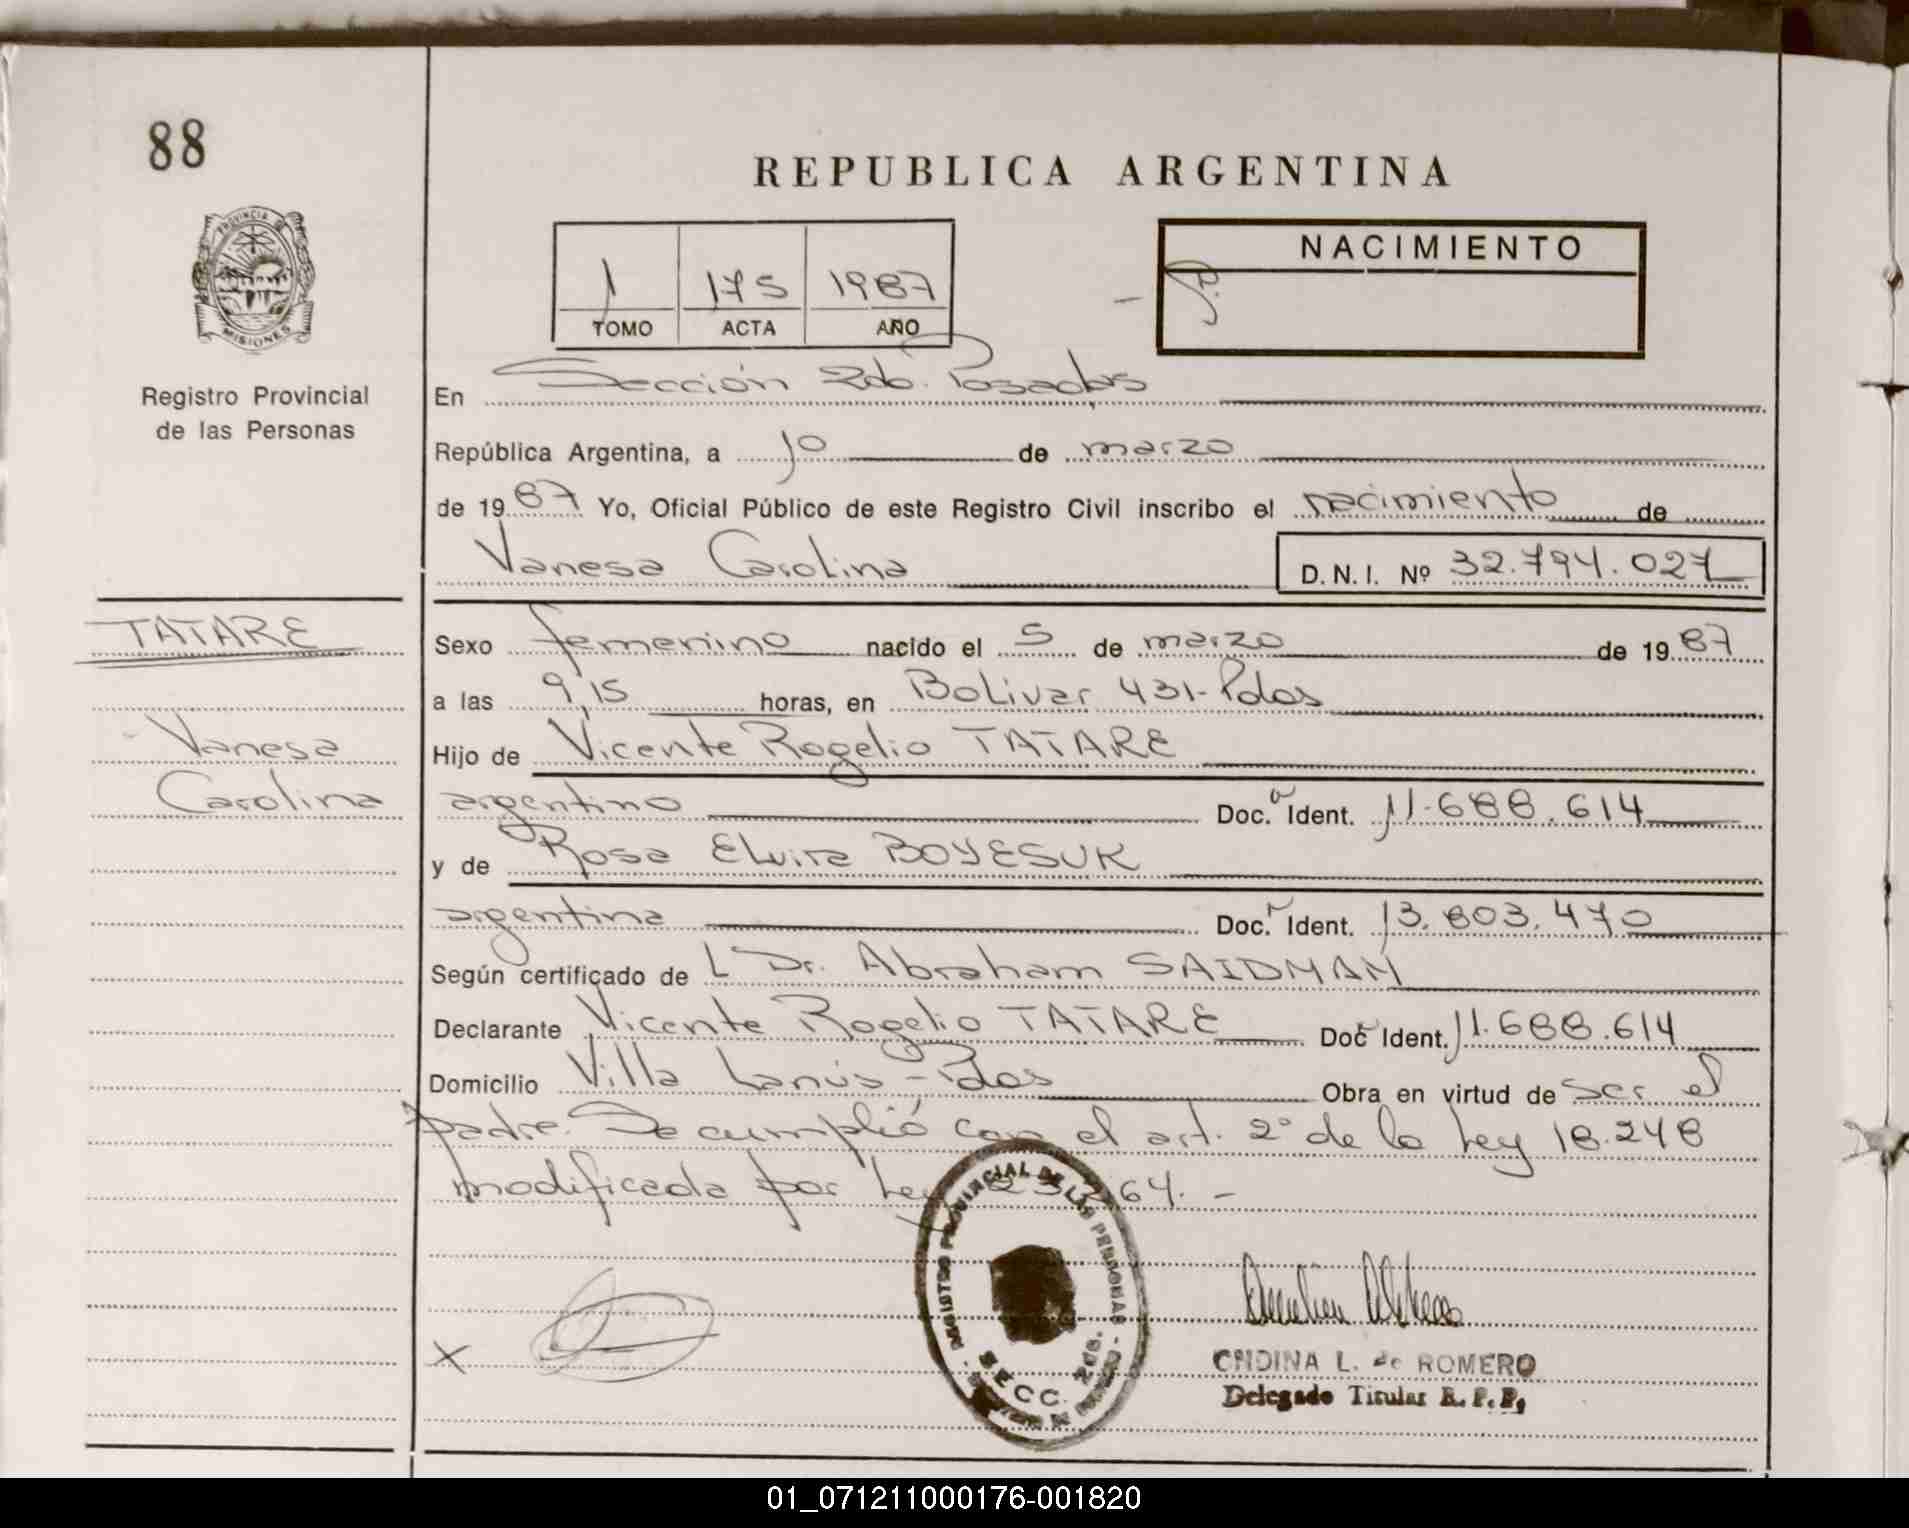 88
REPUBLICA ARGENTINA
PROVINCIA DE
MISIONES
Registro Provincial
de las Personas
1 175 1987
TOMO ACTA AÑO
NACIMIENTO
En Sección 2da. Posadas
República Argentina, a 10 de marzo
de 1987 Yo, Oficial Público de este Registro Civil inscribo el nacimiento de
Vanesa Carolina D.N.I. Nº 32.794.027
TATARE
Vanesa
Carolina
Sexo femenino nacido el 5 de marzo de 1987
a las 9,15 horas, en Bolivar 431-Pdas
Hijo de Vicente Rogelio TATARE
argentino Doc. Ident. 11.688.614
y de Rosa Elvira BOYESUK
argentina Doc. Ident. 13.803.470
Según certificado de L Dr. Abraham SAIDMAN
Declarante Vicente Rogelio TATARE Doc Ident. 11.688.614
Domicilio Villa Lanús - Pdas Obra en virtud de ser el
padre. Se cumplió con el art. 2º de la Ley 18.248
modificada por Ley 64. -
REGISTRO PROVINCIAL DE LAS PERSONAS
SECC. 2da.
X
L. de ROMERO
Delegado Titular R. P. P.
01_071211000176-001820